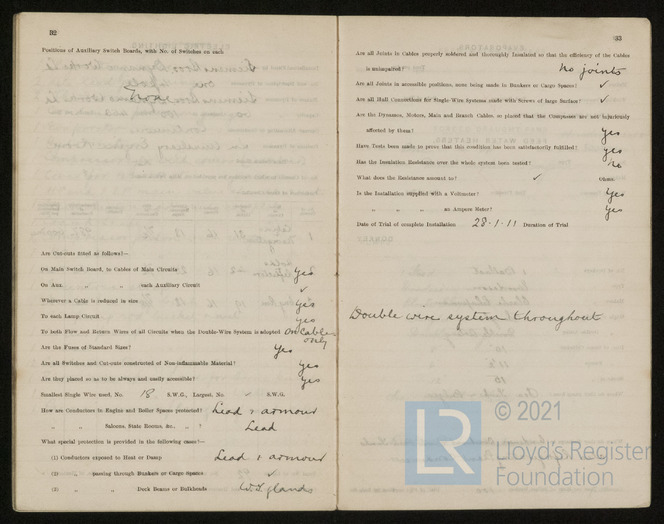 32
Positions of Auxiliary Switch Boards, with No. of Switches on each
None
Are Cut-outs fitted as follows?—
On Main Switch Board, to Cables of Main Circuits yes
On Aux. „ „ each Auxiliary Circuit ✓
Wherever a Cable is reduced in size yes
To each Lamp Circuit yes
To both Flow and Return Wires of all Circuits when the Double-Wire System is adopted On Cables only
Are the Fuses of Standard Sizes? Yes
Are all Switches and Cut-outs constructed of Non-inflammable Material? Yes
Are they placed so as to be always and easily accessible? Yes
Smallest Single Wire used, No. 18 S.W.G., Largest, No. ✓ S.W.G.
How are Conductors in Engine and Boiler Spaces protected? Lead & armour
„ „ Saloons, State Rooms, &c., „ ? Lead
What special protection is provided in the following cases?—
(1) Conductors exposed to Heat or Damp Lead & armour
(2) „ passing through Bunkers or Cargo Spaces ✓
(3) „ „ Deck Beams or Bulkheads W.T. glands
33
Are all Joints in Cables properly soldered and thoroughly Insulated so that the efficiency of the Cables
is unimpaired? No joints
Are all Joints in accessible positions, none being made in Bunkers or Cargo Spaces? ✓
Are all Hull Connections for Single-Wire Systems made with Screws of large Surface? ✓
Are the Dynamos, Motors, Main and Branch Cables, so placed that the Compasses are not injuriously
affected by them? Yes
Have Tests been made to prove that this condition has been satisfactorily fulfilled? Yes
Has the Insulation Resistance over the whole system been tested? No
What does the Resistance amount to? ✓ Ohms.
Is the Installation supplied with a Voltmeter? Yes
„ „ „ an Ampere Meter? Yes
Date of Trial of complete Installation 28.1.11 Duration of Trial
Double wire system throughout
© 2021
LR
Lloyd's Register
Foundation